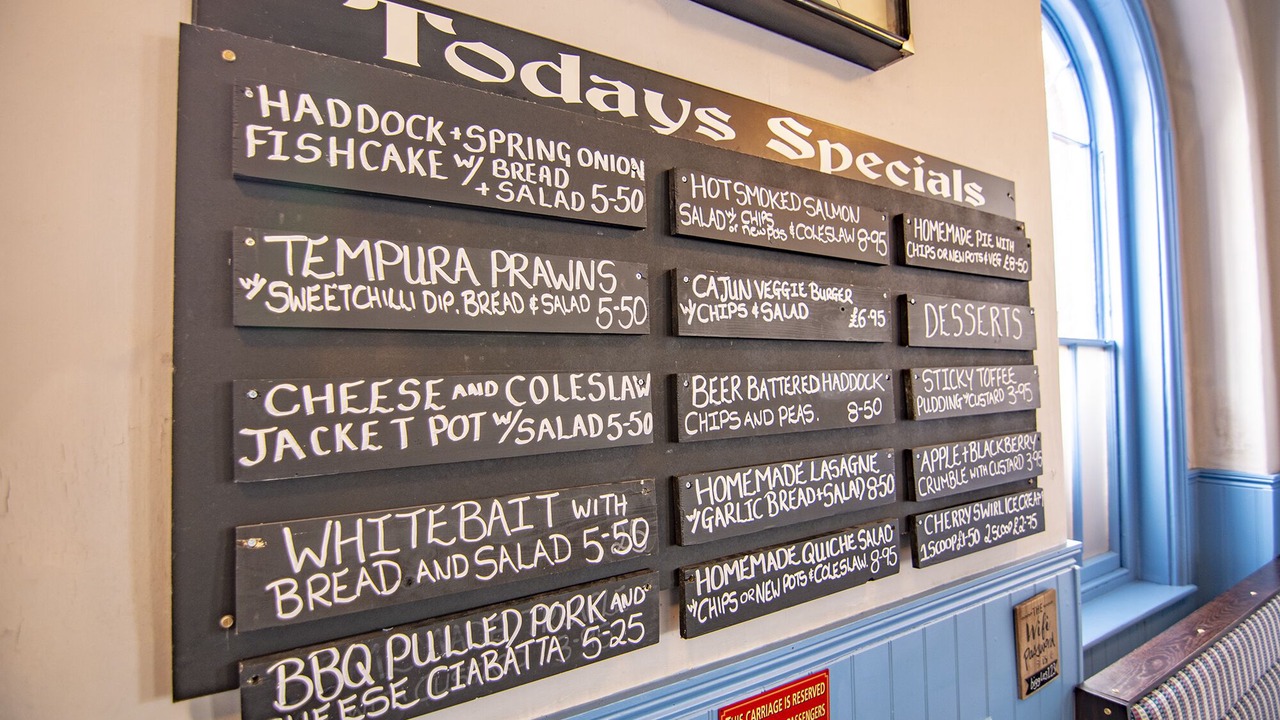 Todays Specials
HADDOCK + SPRING ONION
FISHCAKE W/ BREAD
+ SALAD 5-50
TEMPURA PRAWNS
W/ SWEETCHILLI DIP. BREAD & SALAD 5-50
CHEESE AND COLESLAW
JACKET POT W/ SALAD 5-50
WHITEBAIT WITH
BREAD AND SALAD 5-50
BBQ PULLED PORK AND
CHEESE CIABATTA 5-25
HOT SMOKED SALMON
SALAD W/ CHIPS
or new pots & COLESLAW 8-95
CAJUN VEGGIE BURGER
W/ CHIPS & SALAD £6-95
BEER BATTERED HADDOCK
CHIPS AND PEAS. 8-50
HOMEMADE LASAGNE
W/ GARLIC BREAD + SALAD 8-50
HOMEMADE QUICHE SALAD
W/ CHIPS OR NEW POTS & COLESLAW. 8-95
HOMEMADE PIE WITH
CHIPS OR NEW POTS & VEG £8-50
DESSERTS
STICKY TOFFEE
PUDDING W/ CUSTARD 3-95
APPLE + BLACKBERRY
CRUMBLE WITH CUSTARD 3-95
CHERRY SWIRL ICE CREAM
1 SCOOP £1-50 2 SCOOP £2-75
THE
Wifi
Password
is
THIS CARRIAGE IS RESERVED
PASSENGERS